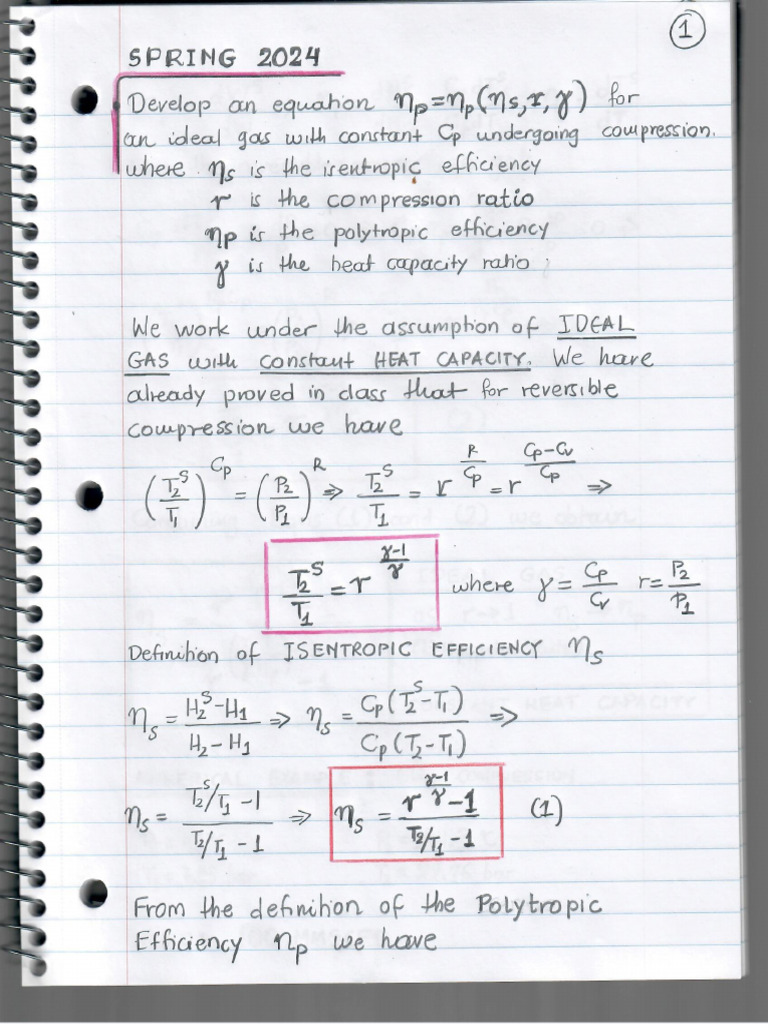 ①
SPRING 2024
Develop an equation ηp=ηp(ηs,r,γ) for
an ideal gas with constant Cp undergoing compression.
where ηs is the isentropic efficiency
r is the compression ratio
ηp is the polytropic efficiency
γ is the heat capacity ratio;
We work under the assumption of IDEAL
GAS with constant HEAT CAPACITY. We have
already proved in class that for reversible
compression we have
(T₂ˢ/T₁)^Cp = (P₂/P₁)^R ⇒ T₂ˢ/T₁ = r^(R/Cp) = r^((Cp-Cv)/Cp) ⇒
T₂ˢ/T₁ = r^((γ-1)/γ) where γ = Cp/Cv r = P₂/P₁
Definition of ISENTROPIC EFFICIENCY ηs
ηs = (H₂ˢ-H₁)/(H₂-H₁) ⇒ ηs = Cp(T₂ˢ-T₁)/Cp(T₂-T₁) ⇒
ηs = (T₂ˢ/T₁ -1)/(T₂/T₁ -1) ⇒ ηs = (r^((γ-1)/γ) -1)/(T₂/T₁ -1) (1)
From the definition of the Polytropic
Efficiency ηp we have